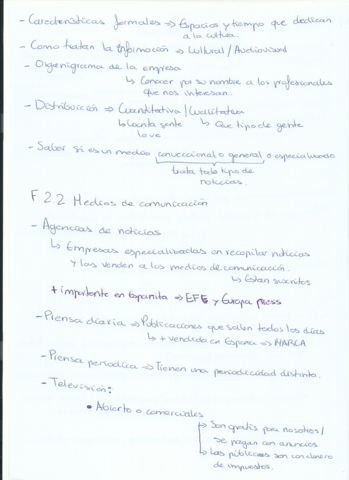 - Características formales → Espacios y tiempo que dedican
a la cultura.
- Como tratan la información → Cultural / Audiovisual
- Organigrama de la empresa
↳ Conocer por su nombre a los profesionales
que nos interesan.
- Distribución → Cuantitativa / Cualitativa
↳ Cuanta gente ↳ Que tipo de gente
lo ve
- Saber si es un medio convencional o general o especializado
trata todo tipo de
noticias
F.2.2 Medios de comunicación
- Agencias de noticias
↳ Empresas especializadas en recopilar noticias
y las venden a los medios de comunicación.
↳ Estan suscritos
+ importante en España → EFE y Europa press
- Prensa diaria → Publicaciones que salen todos los días
↳ + vendido en España → MARCA
- Prensa periodica → Tienen una periodicidad distinta.
- Televisión:
• Abierto o comerciales
→ Son gratis para nosotros /
se pagan con anuncios
→ Las públicas son con dinero
de impuestos.